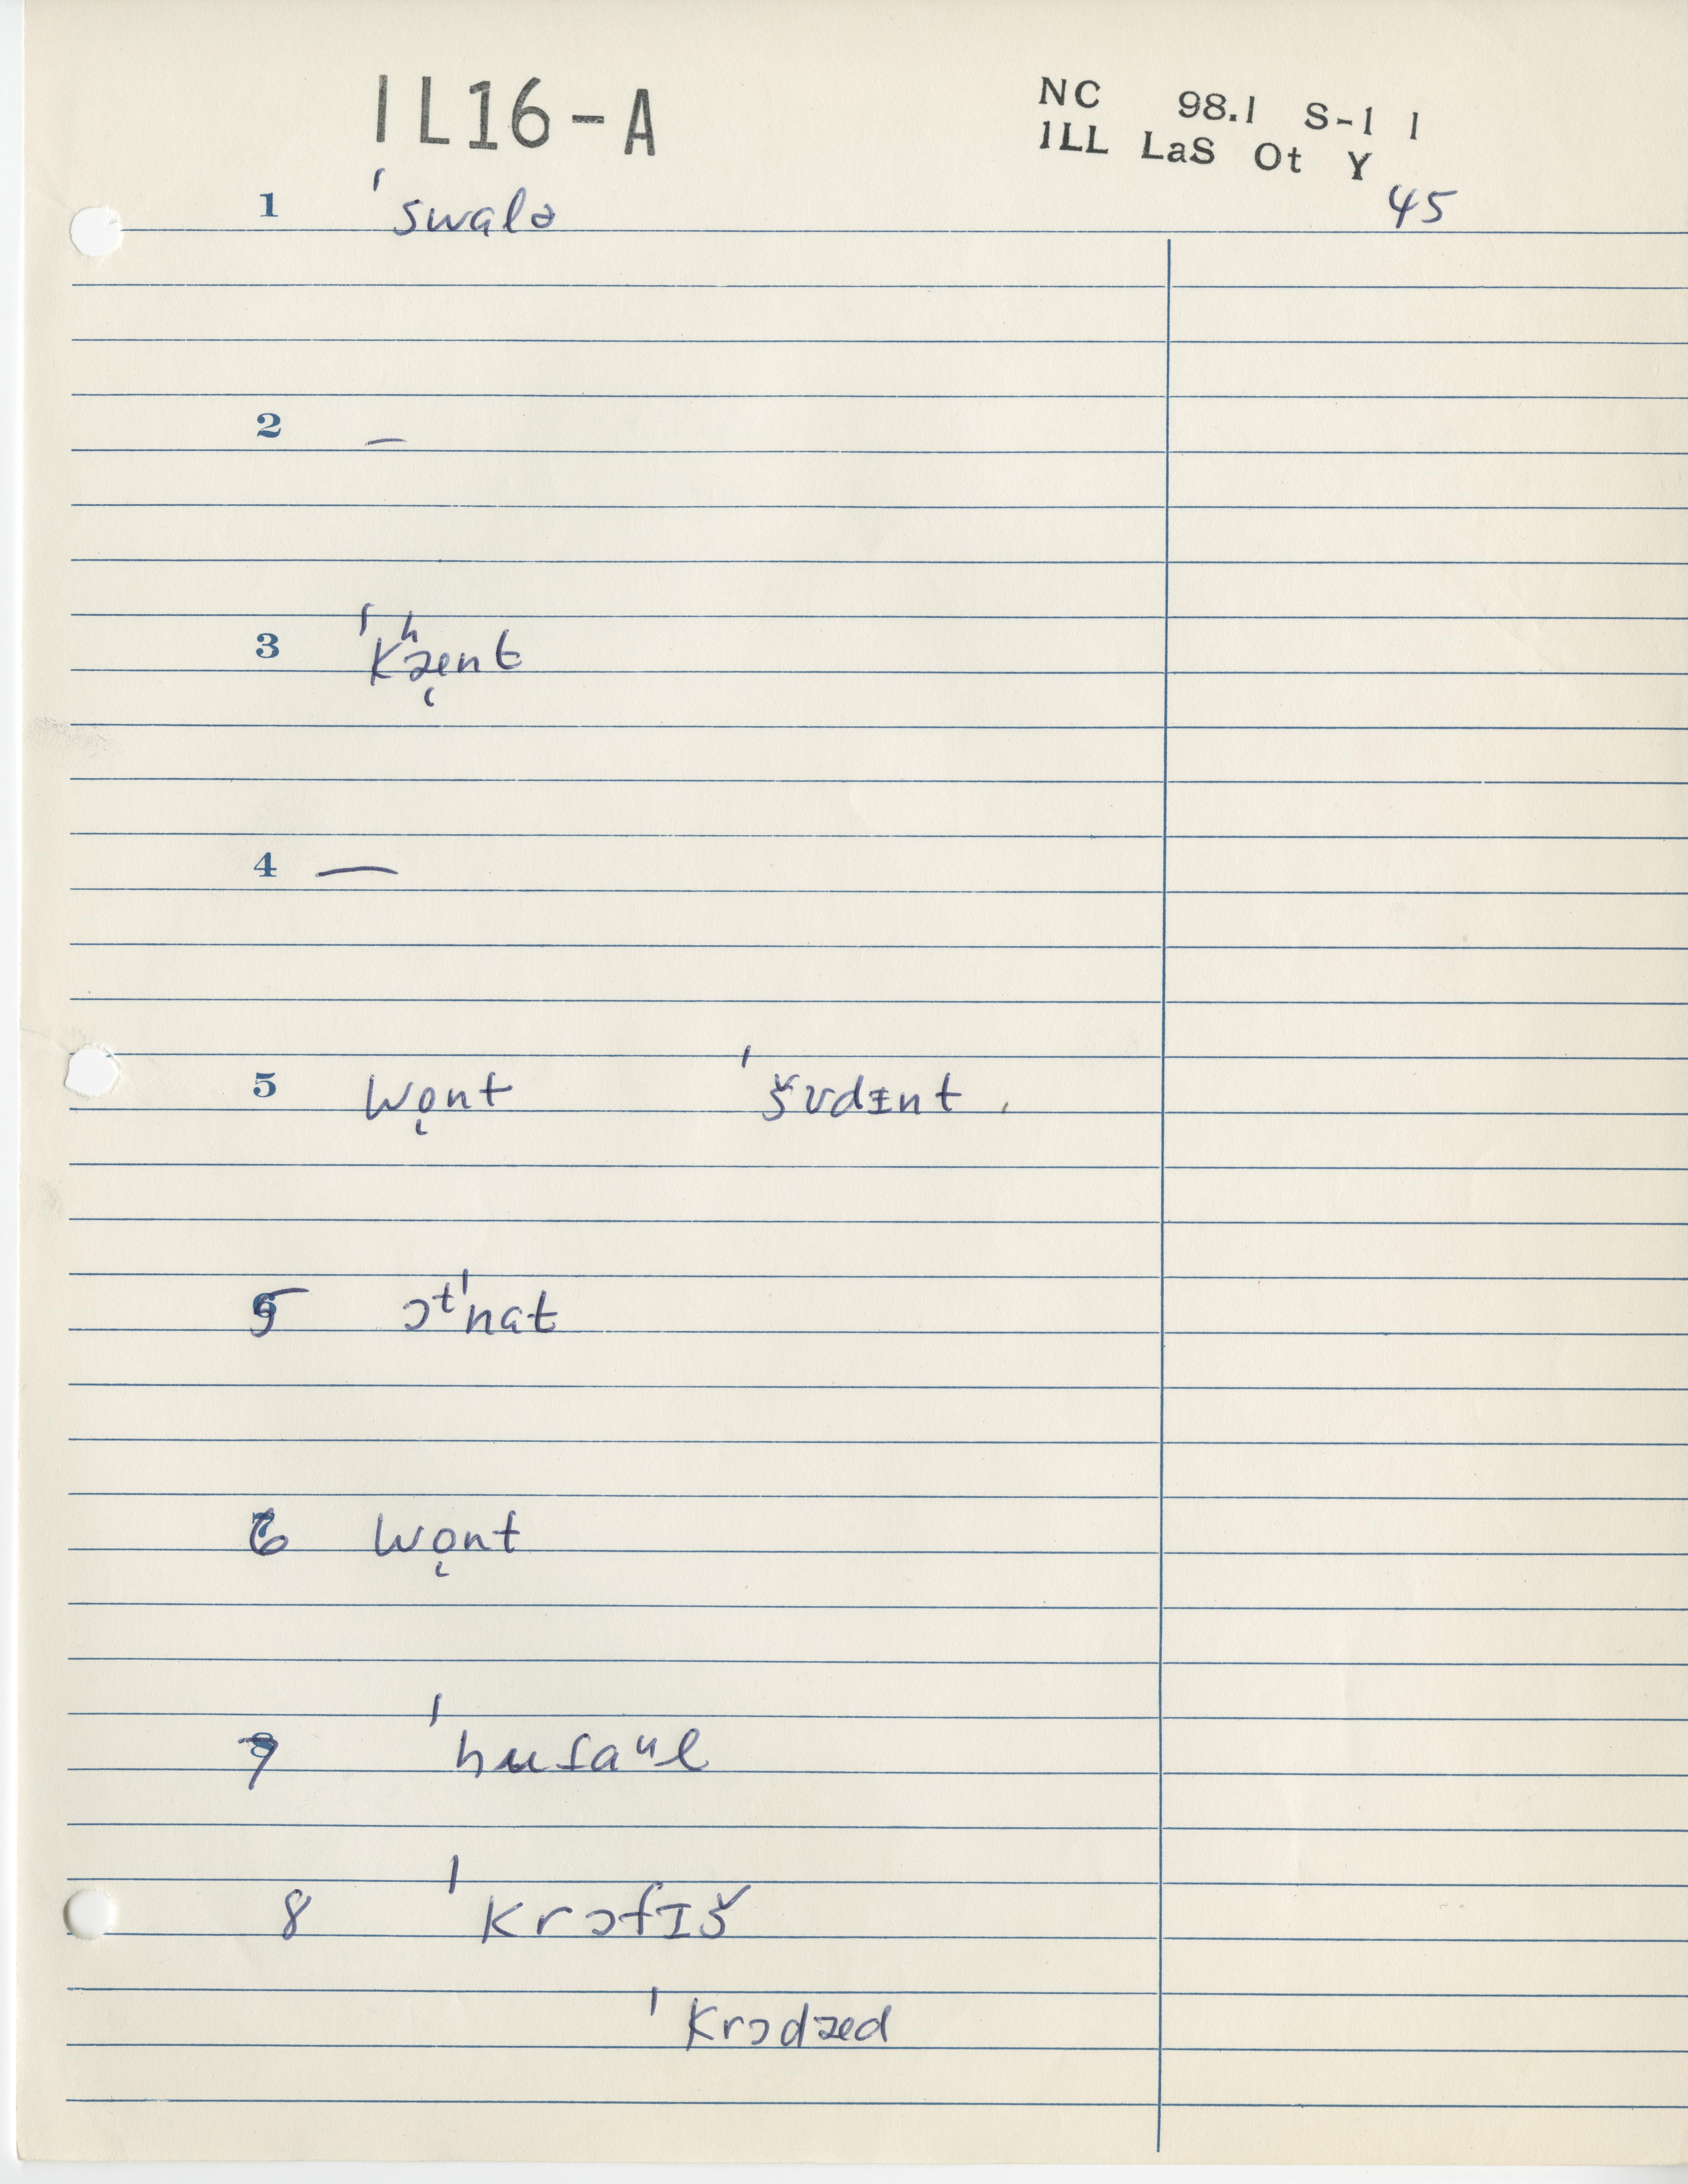 IL16-A
NC 98.1 S-1 1
ILL LaS Ot Y
45
1 ˈswalə
2 —
3 ˈkʰæ̜nt
4 —
5 wo̜nt ˈšʊdɪnt.
5 ɔᵗˈnat
6 wo̜nt
7 ˈhʉfaᵘl
8 ˈkrɔfɪš
ˈkrɔdæd